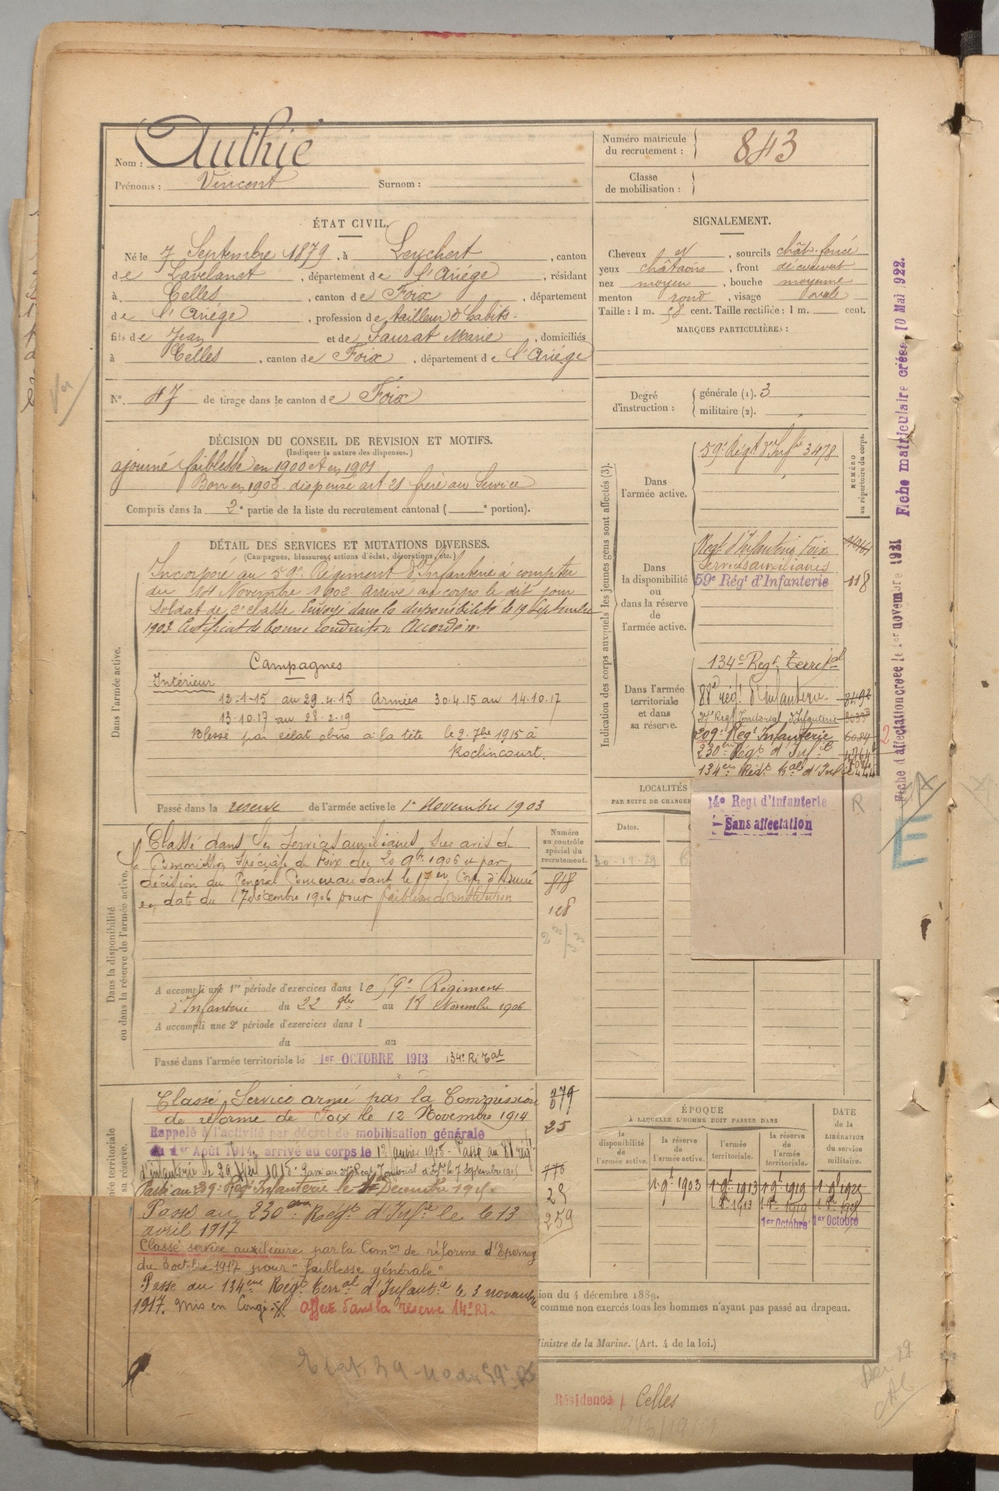 Nom : Authié
Prénoms : Vincent Surnom :
Numéro matricule du recrutement : 843
Classe de mobilisation :
ÉTAT CIVIL.
Né le 7 Septembre 1879, à Leychert, canton
de Lavelanet, département de l'Ariège, résidant
à Celles, canton de Foix, département
de l'Ariège, profession de tailleur d'habits.
fils de Jean et de Saurat Marie, domiciliés
à Celles, canton de Foix, département de l'Ariège
N° 47 de tirage dans le canton de Foix
SIGNALEMENT.
Cheveux, sourcils chât. foncé
yeux châtains, front découvert
nez moyen, bouche moyenne
menton rond, visage ovale
Taille : 1 m. 58 cent. Taille rectifiée : 1 m. cent.
MARQUES PARTICULIÈRES :
Degré d'instruction : générale (1). 3
militaire (2).
DÉCISION DU CONSEIL DE REVISION ET MOTIFS.
(Indiquer la nature des dispenses.)
ajourné (faiblesse) en 1900 et en 1901
Bon en 1902 dispensé art 21 frère au Service
Compris dans la 2e partie de la liste du recrutement cantonal ( e portion).
DÉTAIL DES SERVICES ET MUTATIONS DIVERSES.
(Campagnes, blessures, actions d'éclat, décorations, etc.)
Dans l'armée active.
Incorporé au 59e Régiment d'Infanterie à compter
du Novembre 1902 arrivé au corps le dit jour
Soldat de 2e classe. Envoyé dans la disponibilité le 19 Septembre
1903 Certificat de bonne conduite Accordé
Campagnes
Intérieur
12-1-15 au 29.4.15 Armées 30.4.15 au 14.10.17
13.10.17 au 28-2-19
Blessé par éclat obus à la tête le 2. 7bre 1915 à
Roclincourt.
Passé dans la réserve de l'armée active le 1er Novembre 1903
Indication des corps auxquels les jeunes gens sont affectés (3).
NUMÉRO au répertoire du corps.
Dans l'armée active.
59e Régt d'Infie 3478
Dans la disponibilité ou dans la réserve de l'armée active.
Régt d'Infanterie Foix
Services auxiliaires
59e Régt d'Infanterie 118
Dans l'armée territoriale et dans sa réserve.
134e Régt Territal
88e régt d'Infanterie
Régt Territorial d'Infanterie
209e Régt Infanterie
230e Régt d'Infie
134e Régt d'Infie
14e Régt d'Infanterie
Sans affectation
R
LOCALITÉS
PAR SUITE DE CHANGE
Dates.
Dans la disponibilité ou dans la réserve de l'armée active.
Numéro au contrôle spécial du recrutement.
Classé dans les Services auxiliaires, sur avis de
la Commission Spéciale de Foix du 20 9bre 1906 et par
décision du Général Commandant le 17e Corps d'Armée
en dat du 17 décembre 1906 pour faiblesse de constitution
818
128
A accompli une 1re période d'exercices dans le 59e Régiment
d'Infanterie du 22 8bre au 18 Novembre 1906
A accompli une 2e période d'exercices dans l
du au
Passé dans l'armée territoriale le 1er OCTOBRE 1913 134e Ri Tal
Classé Service armé par la Commission
de réforme de Foix le 12 Novembre 1914
Rappelé à l'activité par décret de mobilisation générale
du 1er Août 1914, arrivé au corps le 12 janvier 1915. Passé au 88 régt
d'infanterie le 29 1915.
Passé au 209e Régt Infanterie le Décembre 1915.
Passé au 230eme Régt d'Infie le le 13
avril 1917
Classé service auxiliaire par la Comon de réforme d'Epernay
du 8 octobre 1917 pour "faiblesse générale"
Passé au 134eme Régt Terral d'Infantie le 3 novembre
1917. Mis en Congé
affecté dans la réserve 14e RI.
379
25
776
29
259
ÉPOQUE
À LAQUELLE L'HOMME DOIT PASSER DANS
la disponibilité de l'armée active.
la réserve de l'armée active.
l'armée territoriale.
la réserve de l'armée territoriale.
DATE DE LA LIBÉRATION du service militaire.
1.9bre 1903
1er Octobre 1er Octobre
ion du 4 décembre 1889.
comme non exercés tous les hommes n'ayant pas passé au drapeau.
inistre de la Marine. (Art. 4 de la loi.)
Résidence Celles
Fiche d'affectation créée le 1er novembre 1921
Fiche matriculaire créée 10 Mai 1922.